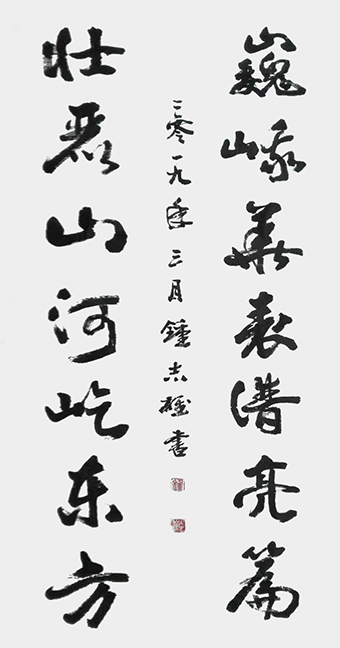 巍峨華表谱亮篇
壮麗山河屹东方
二零一九年三月鍾志書